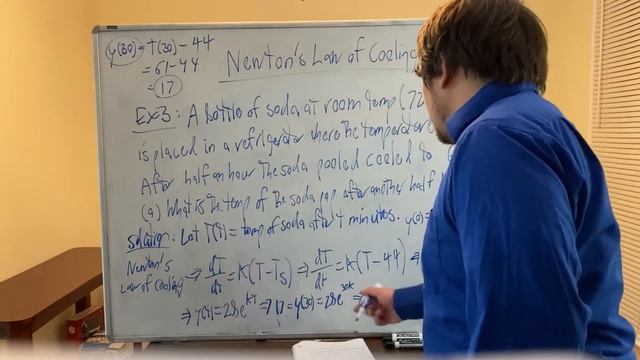 y(30) = T(30) - 44
= 61 - 44
= 17
Newton's Law of Cooling
Ex3: A bottle of soda at room temp (72
is placed in a refrigerator where the temperature
After half an hour the soda cooled to
(a) What is the temp of the soda after another half
solution: Let T(t) = temp of soda after t minutes. y(0) =
Newton's Law of cooling ⇒ dT/dt = K(T - Ts) ⇒ dT/dt = K(T - 44) ⇒
⇒ y(t) = 28e^kt ⇒ 17 = y(30) = 28e^30k ⇒